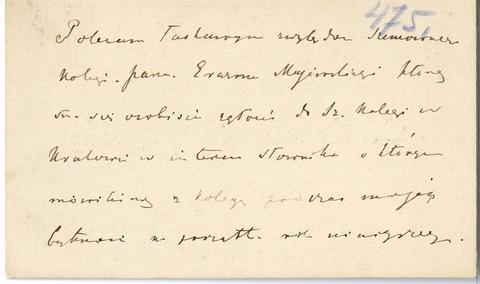 475.
Polecam łaskawym względom Szanownego
Kolegi pana Erazma Majewskiego który
ma się osobiście zgłosić do Sz. Kolegi w
Krakowie w interesie słownika o którym
mówiliśmy z Kolegą podczas mojej
bytności w początk. rok niniejszego.